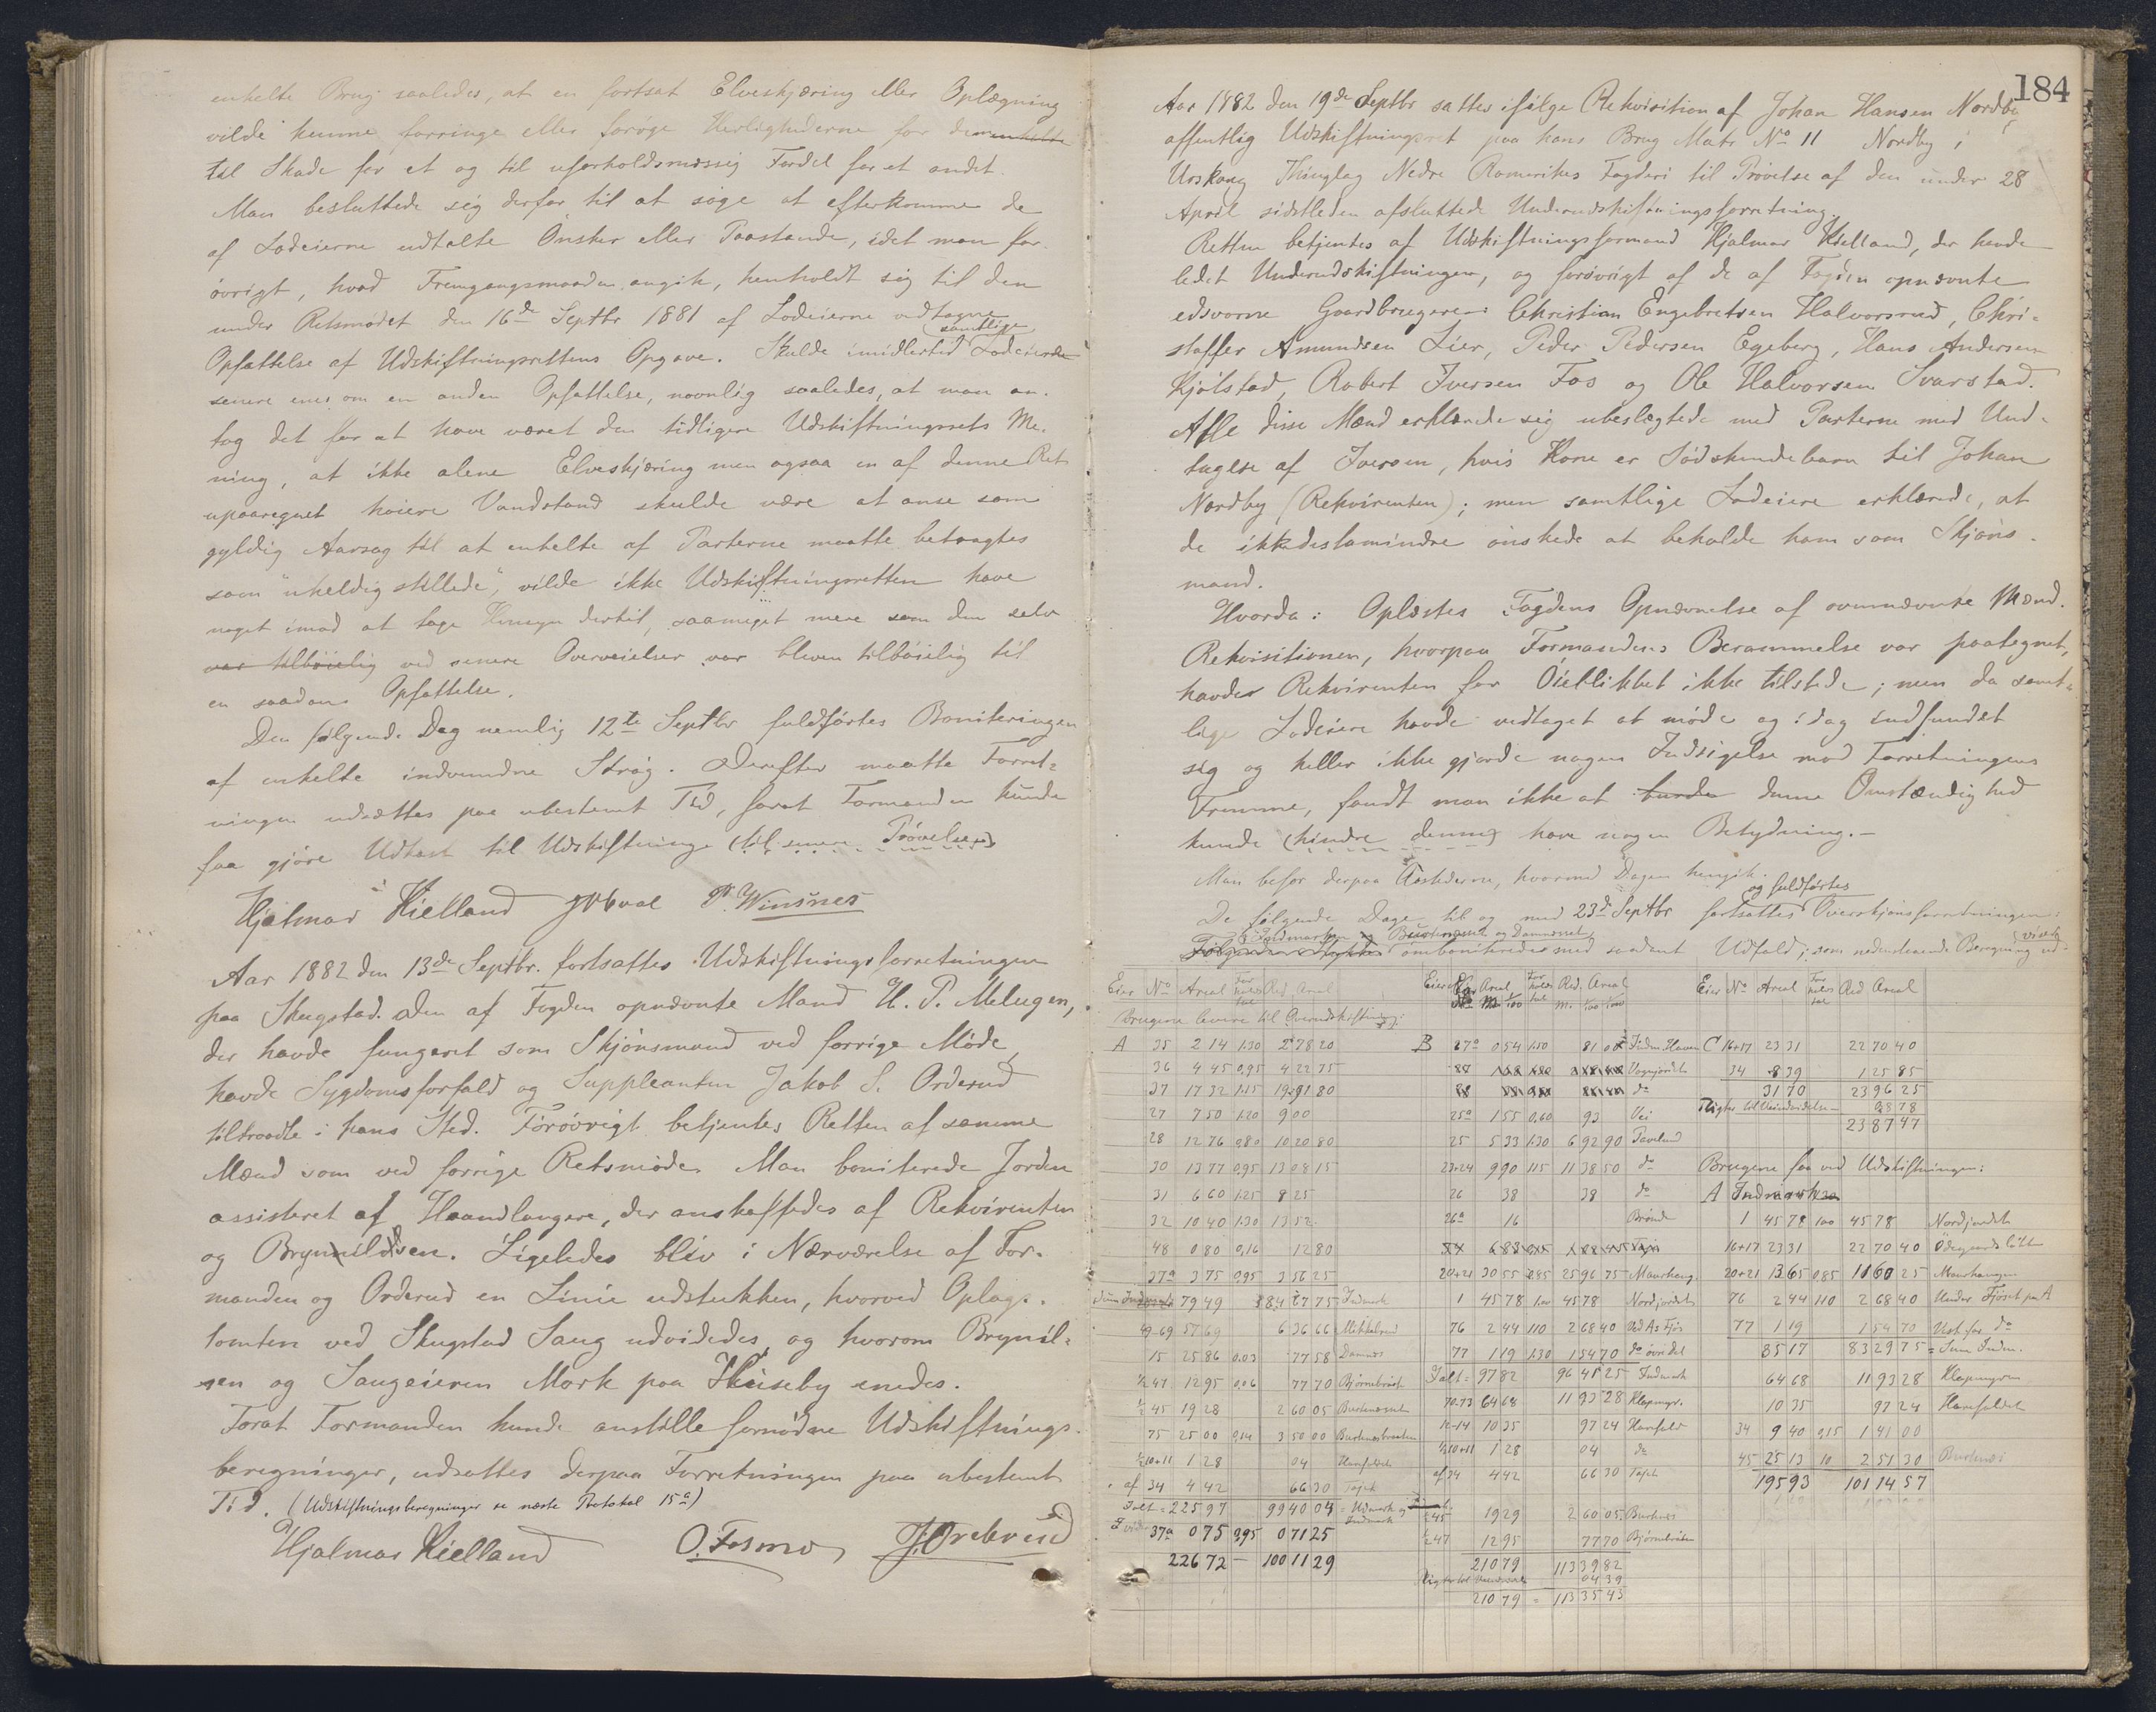 enkelte Brug saaledes, at en fortsat Elveskjæring eller Oplægning
vilde kunne forringe eller forøge Herlighederne for dem enkelte
til Skade for et og til uforholdsmæssig Fordel for et andet.
Man besluttede sig derfor til at søge at efterkomme de
af Lodeierne udtalte Ønsker eller Paastande, idet man for-
øvrigt, hvad Fremgangsmaaden angik, henholdt sig til den
under Retsmødet den 16de Septbr 1881 af Lodeierne vedtagne
Opfattelse af Udskiftningsrettens Opgave. Skulde imidlertid samtlige Lodeierne
senere enes om en anden Opfattelse, navnlig saaledes, at man an-
tog det for at have været den tidligere Udskiftningsrets Me-
ning, at ikke alene Elveskjæring men ogsaa en af denne Ret
upaaregnet høiere Vandstand skulde være at anse som
gyldig Aarsag til at enkelte af Parterne maatte betragtes
som "uheldig stillede", vilde ikke Udskiftningsretten have
noget imod at tage Hensyn dertil, saameget mere som den selv
var tilbøielig ved senere Overveielser var bleven tilbøielig til
en saadan Opfattelse.
Den følgende Dag nemlig 12te Septbr fuldførtes Boniteringen
af enkelte indvundne Strøg. Derefter maatte Forret-
ningen udsættes paa ubestemt Tid, forat Formanden kunde
faa gjøre Udkast til Udskiftninge (til senere Prøvelse)
Hjalmar Kielland P. Winsnes
Aar 1882 den 13de Septbr. fortsattes Udskiftningsforretningen
paa Skugstad. Den af Fogden opnævnte Mand H. P. Melugen,
der havde fungeret som Skjønsmand ved forrige Møde,
havde Sygdomsforfald og Suppleanten Jakob S. Orderud
tiltraadte i hans Sted. Forøvrigt betjentes Retten af samme
Mænd som ved forrige Retsmøde. Man boniterede Jorden
assisteret af Haandlangere, der anskaffedes af Rekvirenten
og Brynnildsen. Ligeledes blev i Nærværelse af For-
manden og Orderud en Linie udstukken, hvorved Oplags-
tomten ved Skugstad Saug udvidedes, og hvorom Brynil-
sen og Saugeieren Mork paa Huseby enedes.
Forat Formanden kunde anstille fornødne Udskiftnings-
beregninger, udsattes derpaa Forretningen paa ubestemt
Tid. (Udskiftningsberegninger se næste Protokol 15a)
Hjalmar Kielland O. Fosmo J. Orderud
184
Aar 1882 den 19de Septbr sattes ifølge Rekvisition af Johan Hansen Nordby
offentlig Udskiftningsret paa hans Brug Matr No 11 Nordby i
Urskoug Thinglag Nedre Romerikes Fogderi til Prøvelse af den under 28
April sidstleden afsluttede Underudskiftningsforretning.
Retten betjentes af Udskiftningsformand Hjalmar Kielland, der havde
ledet Underudskiftningen, og forøvrigt af de af Fogden opnævnte
edsvorne Gaardbrugere: Christian Engebretsen Halvorsrud, Chri-
stoffer Amundsen Lier, Peder Pedersen Egeberg, Hans Andersen
Kjølstad, Robert Iversen Fos og Ole Halvorsen Svarstad.
Alle disse Mænd erklærede sig ubeslægtede med Parterne med Und-
tagelse af Iversen, hvis Kone er Sødskendebarn til Johan
Nordby (Rekvirenten); men samtlige Lodeiere erklærede, at
de ikkedestomindre ønskede at beholde ham som Skjøns-
mand.
Hvorda: Oplæstes Fogdens Opnævnelse af ovennævnte Mænd.
Rekvisitionen, hvorpaa Formandens Berammelse var paategnet,
havde Rekvirenten for Øieblikket ikke tilstede; men da samt-
lige Lodeiere havde vedtaget at møde og idag indfundet
sig og heller ikke gjorde nogen Indsigelse mod Forretningens
Fremme, fandt man ikke at burde denne Omstændighed
kunde (hindre denne) have nogen Betydning.—
Man befor derpaa Aastederne, hvormed Dagen hengik.
De følgende Dage til og med 23de Septbr fortsattes og fuldførtes Overskjønsforretningen:
Indmarken og Burtenæset og Damnæset
Følgende Stykker omboniteredes med saadant Udfald, som nedenstaaende Beregning ud- viser
Eier No Areal For holds tal Red. Areal
Brugerne levere til Overudskiftning:
A 35 2 14 1.30 2 78 20
36 4 45 0,95 4 22 75
37 17 32 1.15 19 91 80
27 7 50 1.20 9 00
28 12 76 0,80 10 20 80
30 13 77 0,95 13 08 15
31 6 60 1.25 8 25
32 10 40 1.30 13 52
48 0 80 0,16 12 80
37a 3 75 0,95 3 56 25
79 49 84 67 75 Indmark
49-69 57 69 6 36 66 Mikkelrud
15 25 86 0.03 77 58 Damnæs
1/2 47 12 95 0,06 77 70 Bjørnebraat
1/2 45 19 28 2 60 05 Burtenæset
75 25 00 0,14 3 50 00 Burtenæsbraaten
1/2 10+11 1 28 04 Harefaldet
af 34 4 42 66 30
Ialt = 225 97 99 40 04 = Udmark og Indmark
37a 0 75 0,95 0 71 25
226 72 — 100 11 29
Eier No Areal For holds tal Red. Areal
B 27a 0 54 1.50 81 00 Inden Haven
25a 1 55 0,60 93 Vei
25 5 33 1.30 6 92 90
23+24 9 90 1.15 11 38 50 do
26 38 38 do
26a 16 Brønde
20+21 30 55 0.85 25 96 75 Maurhaug.
1 45 78 1.00 45 78 Nordjordet
76 2 44 1.10 2 68 40 Ved As Fjøs
77 1 19 1.30 1 54 70 do øvre del
Ialt = 97 82 96 45 25 Indmark
70-73 64 68 11 93 28 Klopmyr.
10-14 10 35 97 24 Harefald
1/2 10+11 1 28 04 do
af 34 4 42 66 30
1/2 45 19 29 2 60 05 Burtnæs
1/2 47 12 95 77 70 Bjørnebraaten
210 79 113 39 82
04 39
210 79 = 113 35 43
Eier No Areal For holds tal Red Areal
C 16+17 23 31 22 70 40
34 8 39 1 25 85
31 70 23 96 25
2 38 7 47
Brugerne faa ved Udskiftningen:
A Indmarken
1 45 78 1.00 45 78 Nordjordet
16+17 23 31 22 70 40 Ødegaardsløkken
20+21 13 65 0.85 11 60 25 Maurhaugen
76 2 44 1.10 2 68 40 Under Fjøset paa A
77 1 19 1 54 70 Vest for do
85 17 83 29 75 = Sum Indm.
64 68 11 93 28 Klopmyren
10 35 97 24 Harefaldet
34 9 40 0,15 1 41 00
45 25 13 10 2 51 30 Burtenæs
195 93 101 14 57